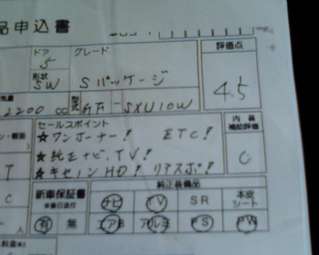 品申込書
ドア グレード 評価点
5 Sパッケージ 4.5
形状 SW
2200 cc SXU10W
セールスポイント 内装 補助評価
☆ワンオーナー! ETC!
☆純正ナビ,TV! C
☆キセノンHD! リアスポ!
新車保証書 純正装備品
ナビ TV SR 本皮シート
有 無 エアB アルミ PS PW